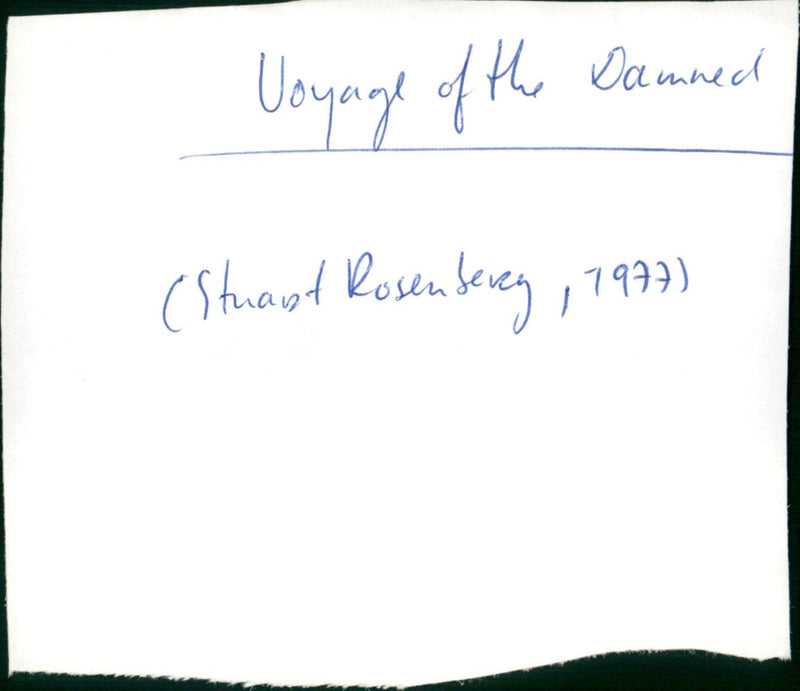 Voyage of the Damned
(Stuart Rosenberg, 1977)